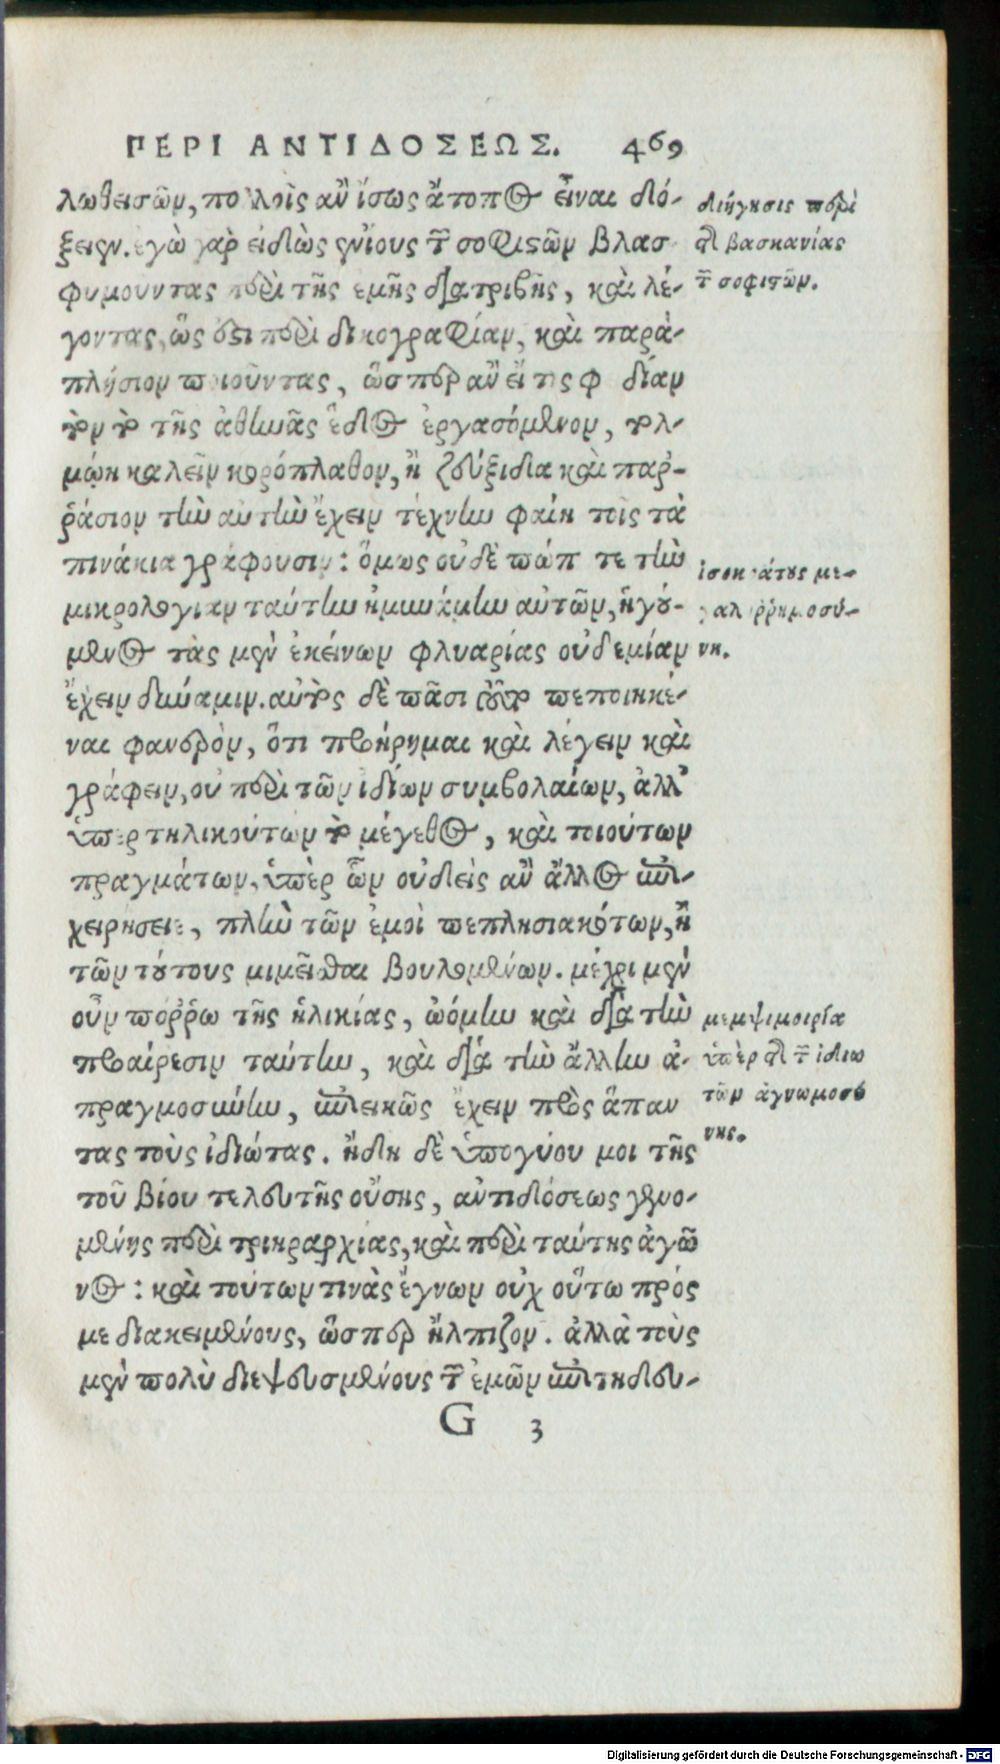 ΠΕΡΙ ΑΝΤΙΔΟΣΕΩΣ. 469
λωθεισῶν, πολλοῖς ἂν ἴσως ἄτοπος εἶναι δό-
ξειεν. ἐγὼ γὰρ εἰδὼς ἐνίους τῶν σοφιστῶν βλασ
φημουντας περὶ τῆς ἐμῆς διατριβῆς, καὶ λέ-
γοντας, ὥς ἐστι περὶ δικογραφίαν, καὶ παρα-
πλήσιον ποιοῦντας, ὥσπερ ἂν εἴ τις φ διαν
τὸν τὸ τῆς ἀθηνᾶς ἕδος ἐργασάμενον, τολ-
μῴη καλεῖν κοροπλάθον, ἢ ζεύξιδα καὶ παρ-
ῥάσιον τὴν αὐτὴν ἔχειν τέχνην φαίη τοῖς τὰ
πινάκια γράφουσιν: ὅμως οὐδὲ πώποτε τὴν
μικρολογίαν ταύτην ἠμυνάμην αὐτῶν, ἡγού-
μενος τὰς μὲν ἐκείνων φλυαρίας οὐδεμίαν
ἔχειν δύναμιν. αὐτὸς δὲ πᾶσι τοῦτο πεποιηκέ-
ναι φανερὸν, ὅτι προῄρημαι καὶ λέγειν καὶ
γράφειν, οὐ περὶ τῶν ἰδίων συμβολαίων, ἀλλ'
ὑπὲρ τηλικούτων τὸ μέγεθος, καὶ τοιούτων
πραγμάτων, ὑπὲρ ὧν οὐδεὶς ἂν ἄλλος ἐπι-
χειρήσειε, πλὴν τῶν ἐμοὶ πεπλησιακότων, ἢ
τῶν τούτους μιμεῖσθαι βουλομένων. μέχρι μὲν
οὖν πόῤῥω τῆς ἡλικίας, ᾠόμην καὶ διὰ τὴν
προαίρεσιν ταύτην, καὶ διὰ τὴν ἄλλην ἀ-
πραγμοσύνην, ἐπιεικῶς ἔχειν πρὸς ἅπαν
τας τοὺς ἰδιώτας. ἤδη δὲ ὑπογύου μοι τῆς
τοῦ βίου τελευτῆς οὔσης, ἀντιδόσεως γενο-
μένης περὶ τριηραρχίας, καὶ περὶ ταύτης ἀγῶ
νος: καὶ τούτων τινὰς ἔγνων οὐχ οὕτω πρός
με διακειμένους, ὥσπερ ἤλπιζον. ἀλλὰ τοὺς
μὲν πολὺ διεψευσμένους τῶν ἐμῶν ἐπιτηδευ-
G 3
διήγησις περὶ
τῆς βασκανίας
τῶν σοφιστῶν.
ἰσοκράτους με-
γαλοῤῥημοσύ-
νη.
μεμψιμοιρία
ὑπὲρ τῆς τῶν ἰδιω
τῶν ἀγνωμοσύ
νης.
Digitalisierung gefördert durch die Deutsche Forschungsgemeinschaft - DFG